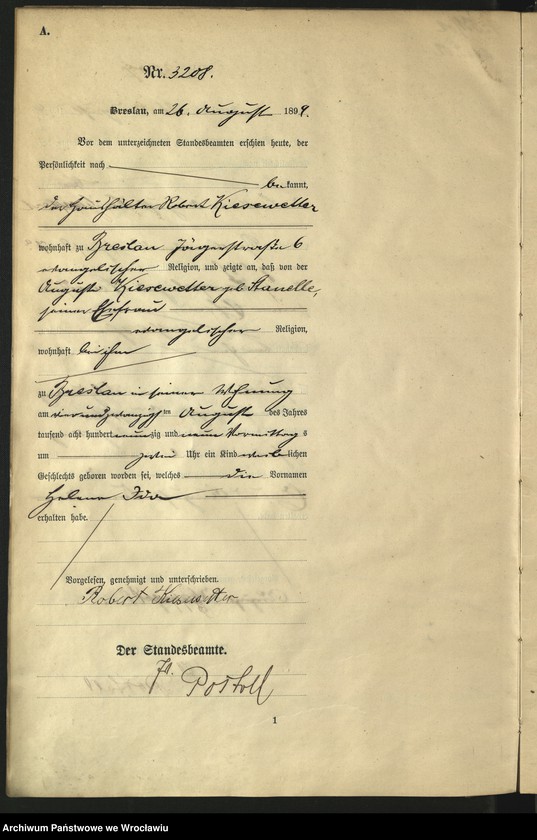 A.
Nr. 3208.
Breslau, am 26. August 1899.
Vor dem unterzeichneten Standesbeamten erschien heute, der
Persönlichkeit nach
be kannt,
der Haushälter Robert Kiesewetter
wohnhaft zu Breslau Jägerstraße 6
evangelischer Religion, und zeigte an, daß von der
Auguste Kiesewetter geb. Stanelle,
seiner Ehefrau
evangelischer Religion,
wohnhaft bei ihm
zu Breslau in seiner Wohnung
am vierundzwanzigsten August des Jahres
tausend acht hundert neunzig und neun Vormittags
um zehn Uhr ein Kind weiblichen
Geschlechts geboren worden sei, welches die Vornamen
Helene Ida
erhalten habe.
Vorgelesen, genehmigt und unterschrieben.
Robert Kiesewetter
Der Standesbeamte.
1
Archiwum Państwowe we Wrocławiu